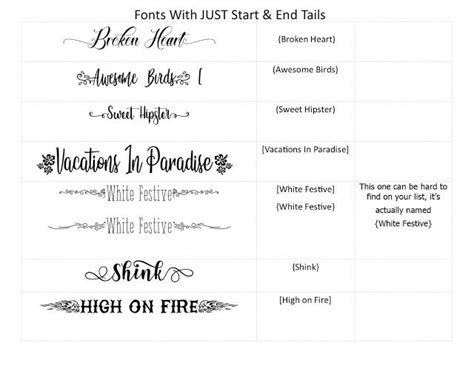 Fonts With JUST Start & End Tails
Broken Heart
{Broken Heart}
Awesome Birds [
{Awesome Birds}
Sweet Hipster
{Sweet Hipster}
Vacations In Paradise
[Vacations In Paradise}
White Festive
[White Festive}
This one can be hard to
find on your list, it's
actually named
{White Festive}
White Festive
{White Festive}
Shink
{Shink}
HIGH ON FIRE
[High on Fire]